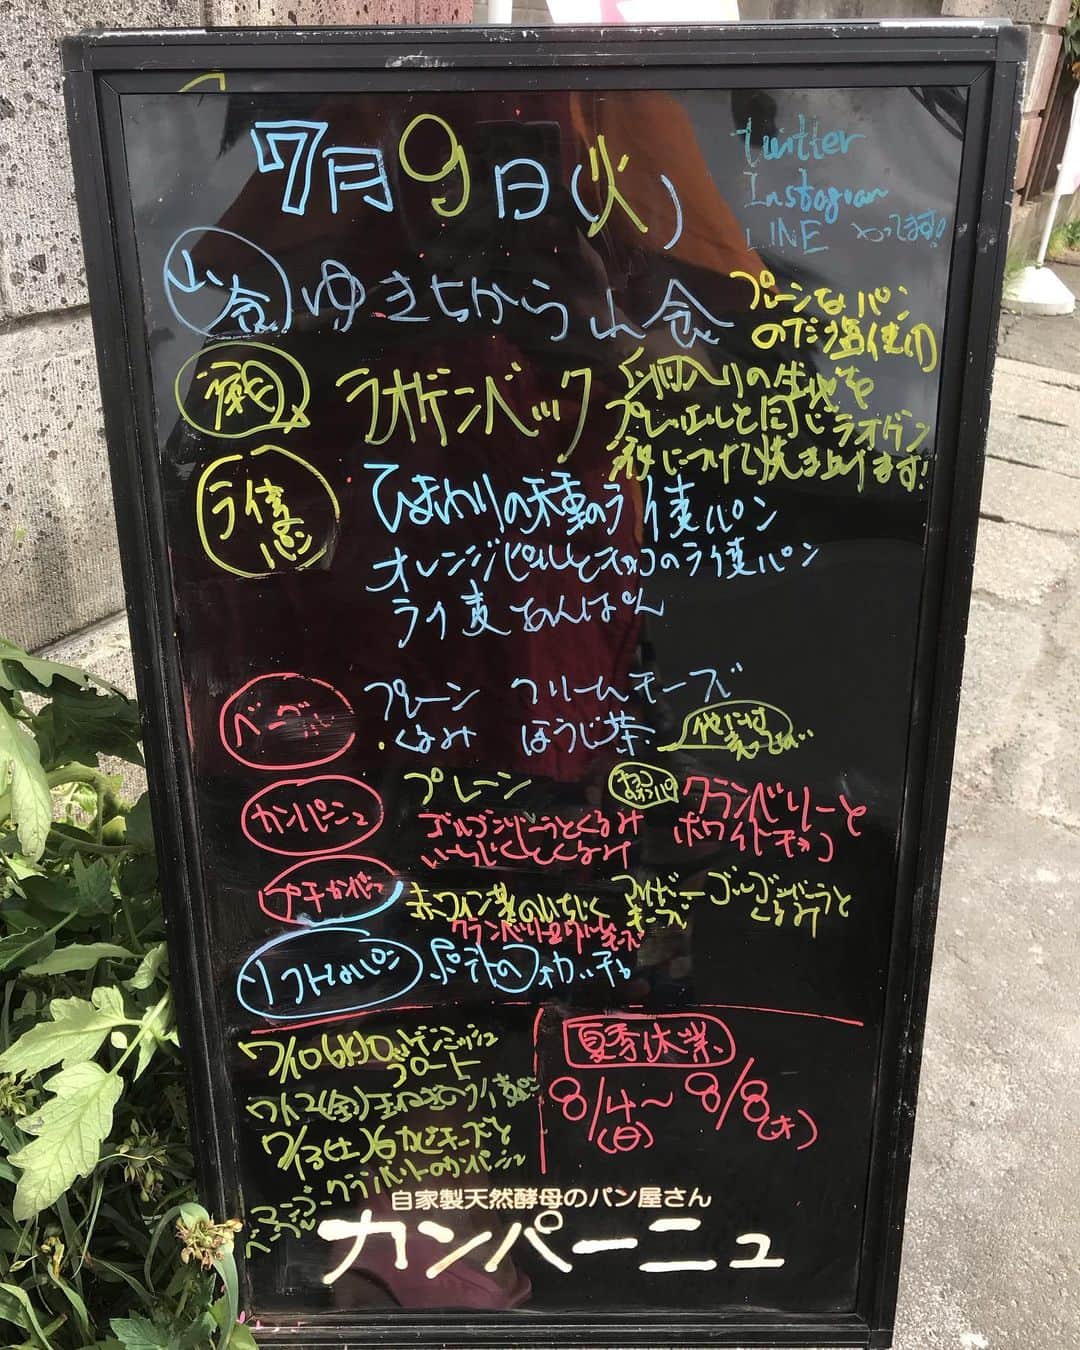 7月9日(火)
twitter
Instagram
LINE やってます!!
山食 ゆきちから山食
プレーンなパン
のだ塩使用
ラオゲンベック
入りの生地を
プレッツェルと同じラオゲン
液につけて焼き上げます!
ライ麦パン
ひまわりの種のライ麦パン
オレンジピールとチョコのライ麦パン
ライ麦あんぱん
ベーグル
プレーン クリームチーズ
くるみ ほうじ茶
カンパーニュ
プレーン
ゴルゴンゾーラとくるみ
いちじくとくるみ
クランベリーと
ホワイトチョコ
プチカンパ
赤ワイン煮のいちじく
クランベリークリームチーズ
ゴルゴンゾーラと
くるみ
ソフトなパン ポテトのフォカッチャ
7/10(水)
ブロート
7/12(金)玉ねぎのライ麦パン
7/13(土)
クランベリーのカンパーニュ
夏季休業
8/4〜8/8
(日) (木)
自家製天然酵母のパン屋さん
カンパーニュ